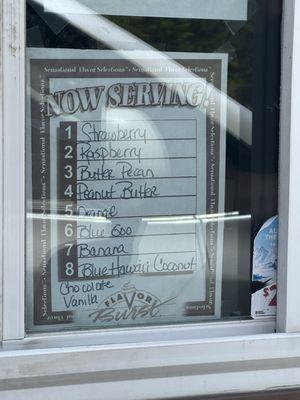 Sensational Flavor Selections™ • Sensational Flavor Selections™
NOW SERVING!
1 Strawberry
2 Raspberry
3 Butter Pecan
4 Peanut Butter
5 Orange
6 Blue Goo
7 Banana
8 Blue Hawaii Coconut
Chocolate
Vanilla
FLAVOR
Burst